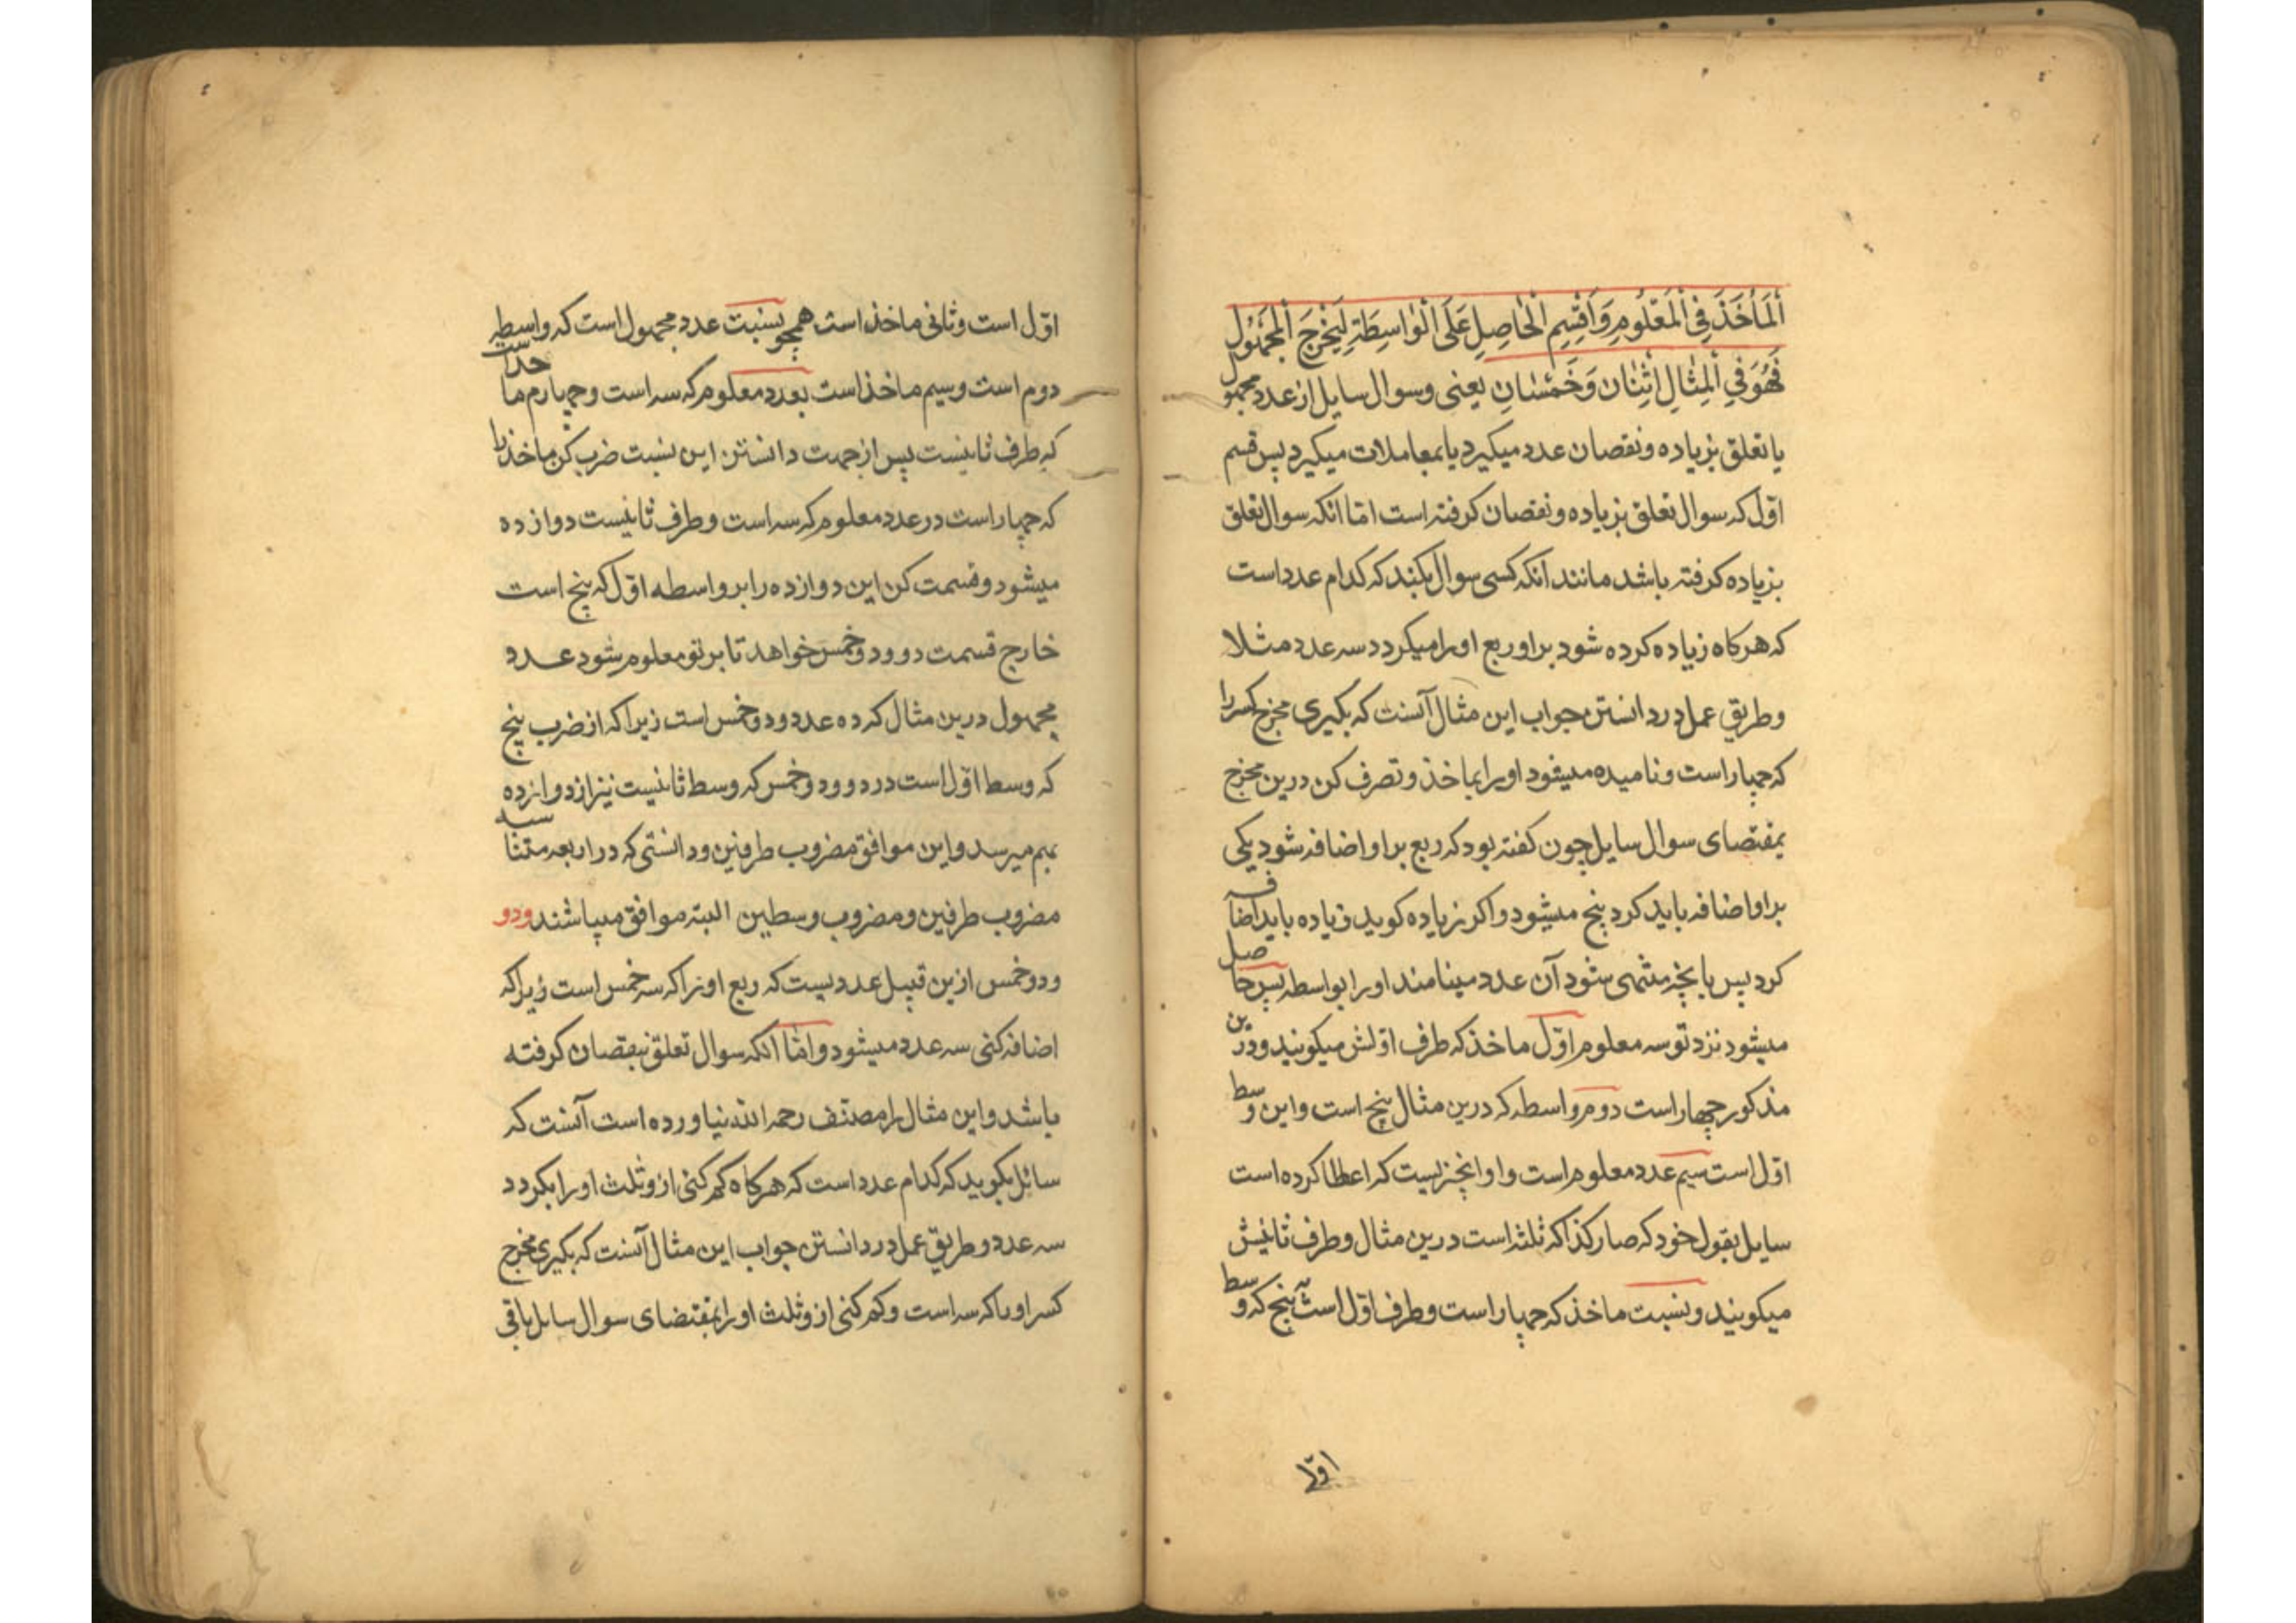 اَلْمَأْخَذَ فِي الْمَعْلُومِ وَاَقْسِمِ الْحَاصِلِ عَلَى الْوَاسِطَةِ لِيَخْرُجَ الْمَجْهُولُ
فَهُوَ فِي الْمِثَالِ اِثْنَانِ وَخُمْسَانِ یعنی وسوال سایل از عدد مجهول
یا تعلق بزیاده ونقصان عدد میگیرد یا بمعاملات میگیرد پس قسم
اوّل که سوال تعلق بزیاده ونقصان کرفته است امّا انکه سوال تعلق
بزیاده کرفته باشد مانند انکه کسی سوال بکند که کدام عدد است
که هر کاه زیاده کرده شود براو ربع او را میکردد سه عدد مثلا
وطریق عمل در دانستن جواب این مثال آنست که بکیری مخرج کسر را
که چهار است ونامیده میشود او را بماخذ وتصرف کن درین مخرج
بمقتضای سوال سایل چون کفته بود که ربع براو اضافه شود یکی
براو اضافه باید کرد پنج میشود واکر زیاده کوید زیاده باید اضافه
کرد پس بانچه منتهی شود آن عدد مینامند او را بواسطه پس حاصل
میشود نزد تو سه معلوم اوّل ماخذ که طرف اوّلش میکویند ودرین
مذکور چهار است دوم واسطه که درین مثال پنج است واین وسط
اوّل است سیم عدد معلوم است واو انچیزیست که اعطا کرده است
سایل بقول خود که صار کذا که ثلثه است درین مثال وطرف ثانیش
میکویند ونسبت ماخذ که چهار است وطرف اوّل است به پنج که وسط
اوّل
اوّل است وثانی ماخذ است همچو نسبت عدد مجهول است که واسطه
دوم است وسیم ماخذ است بعدد معلوم که سه است وچهارم ماخذ است
که طرف ثانیست پس از جهت دانستن این نسبت ضرب کن ماخذ را
که چهار است در عدد معلوم که سه است وطرف ثانیست دوازده
میشود وقسمت کن این دوازده را بر واسطه اوّل که پنج است
خارج قسمت دو ودو خمس خواهد تا بر تو معلوم شود عدد
مجهول درین مثال که ده عدد ودو خمس است زیرا که از ضرب پنج
که وسط اوّل است در دو ودو خمس که وسط ثانیست نیز از دوازده
بهم میرسد واین موافق مضروب طرفین ودانستی که در اربعه متناسبه
مضروب طرفین ومضروب وسطین البته موافق میباشند ودو
ودو خمس ازین قبیل عددیست که ربع او را که سه خمس است زیرا که
اضافه کنی سه عدد میشود وامّا انکه سوال تعلق بنقصان کرفته
باشد واین مثال را مصنف رحمه الله نیاورده است آنست که
سائل بکوید که کدام عدد است که هر کاه کم کنی ازو ثلث او را بکردد
سه عدد وطریق عمل در دانستن جواب این مثال آنست که بکیری مخرج
کسر او را که سه است وکم کنی ازو ثلث او را بمقتضای سوال سایل باقی